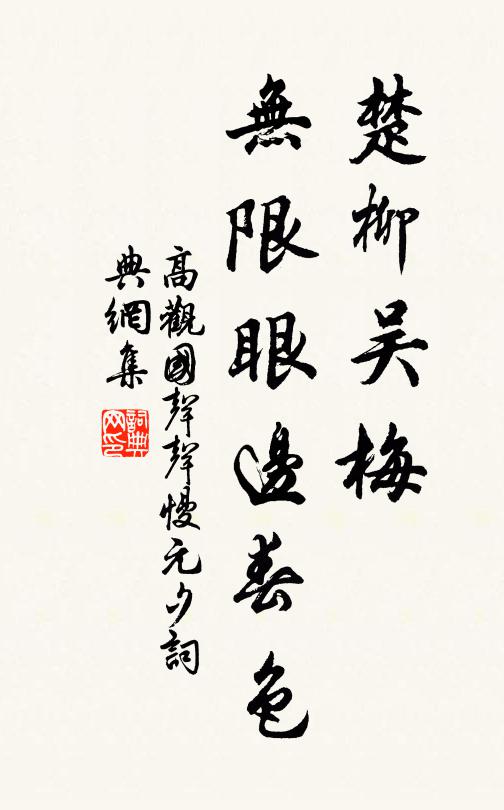 楚柳吴梅
無限眼邊春色
高觀國聲聲慢元夕詞
典網集
詞典网印